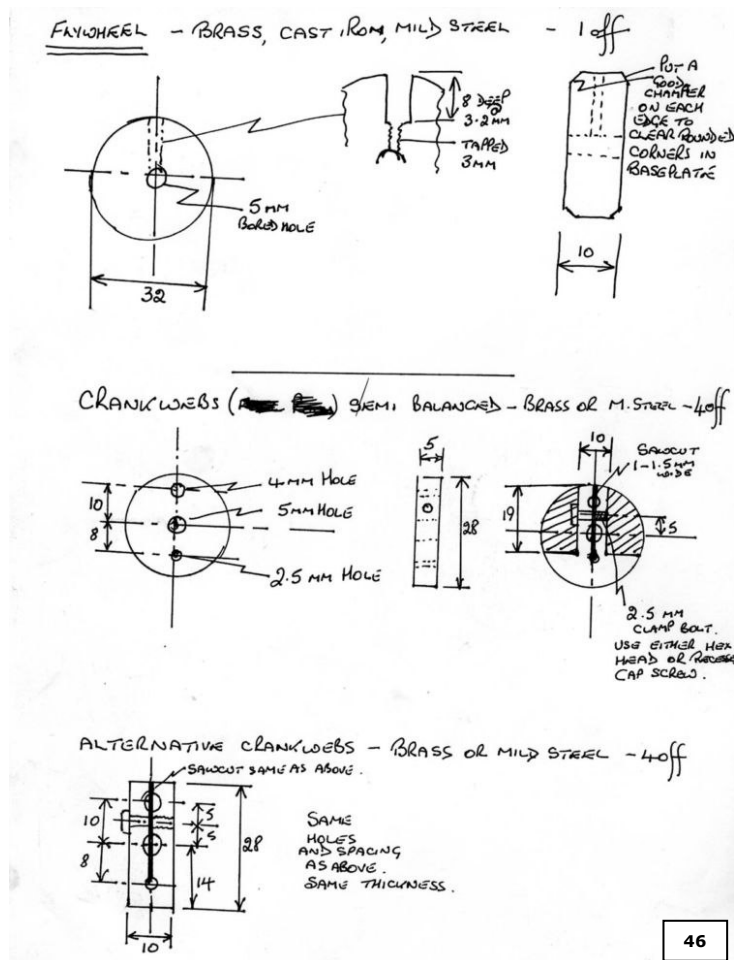 FLYWHEEL - BRASS, CAST IRON, MILD STEEL - 1 off
PUT A
GOOD
CHAMFER
ON EACH
EDGE TO
CLEAR ROUNDED
CORNERS IN
BASEPLATE
8 DEEP
@
3.2MM
TAPPED
3MM
5MM
BORED HOLE
32
10
CRANKWEBS ( ) SEMI BALANCED - BRASS OR M.STEEL - 4off
4MM HOLE
5MM HOLE
2.5 MM HOLE
10
8
5
28
10
SAWCUT
1-1.5MM
WIDE
19
5
2.5 MM
CLAMP BOLT.
USE EITHER HEX
HEAD OR RECESS
CAP SCREW.
ALTERNATIVE CRANKWEBS - BRASS OR MILD STEEL - 4off
SAWCUT SAME AS ABOVE.
10
8
5
5
28
14
10
SAME
HOLES
AND SPACING
AS ABOVE.
SAME THICKNESS.
46